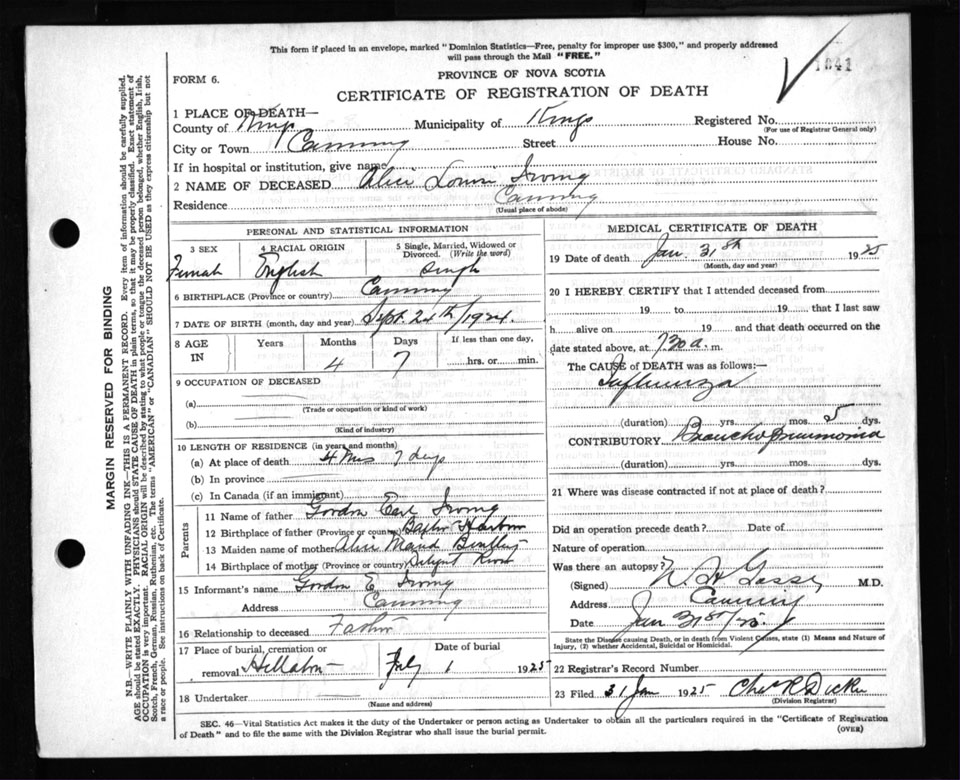 This form if placed in an envelope, marked "Dominion Statistics—Free, penalty for improper use $300," and properly addressed
will pass through the Mail "FREE."
1841
FORM 6.
PROVINCE OF NOVA SCOTIA
CERTIFICATE OF REGISTRATION OF DEATH
1 PLACE OF DEATH—
County of Kings Municipality of Kings Registered No.
(For use of Registrar General only)
City or Town Canning Street House No.
If in hospital or institution, give name
2 NAME OF DECEASED Alice Irving
Residence Canning
(Usual place of abode)
PERSONAL AND STATISTICAL INFORMATION
3 SEX 4 RACIAL ORIGIN 5 Single, Married, Widowed or
Divorced. (Write the word)
Female English Single
6 BIRTHPLACE (Province or country) Canning
7 DATE OF BIRTH (month, day and year) Sept. 24th/1924.
8 AGE IN Years Months Days If less than one day,
4 7 hrs. or min.
9 OCCUPATION OF DECEASED
(a)
(Trade or occupation or kind of work)
(b)
(Kind of industry)
10 LENGTH OF RESIDENCE (in years and months)
(a) At place of death 4 mos 7 days
(b) In province
(c) In Canada (if an immigrant)
Parents
11 Name of father Gordon Earl Irving
12 Birthplace of father (Province or country) Harbour
13 Maiden name of mother Alice Maud
14 Birthplace of mother (Province or country)
15 Informant's name Gordon E Irving
Address Canning
16 Relationship to deceased Father
17 Place of burial, cremation or Date of burial
removal 1 1925
18 Undertaker
(Name and address)
MEDICAL CERTIFICATE OF DEATH
19 Date of death Jan. 31st 1925
(Month, day and year)
20 I HEREBY CERTIFY that I attended deceased from
19 to 19 that I last saw
h alive on 19 and that death occurred on the
date stated above, at 7.30 a. m.
The CAUSE of DEATH was as follows:—
Influenza
(duration) yrs. mos. 5 dys.
CONTRIBUTORY Broncho Pneumonia
(duration) yrs. mos. dys.
21 Where was disease contracted if not at place of death?
Did an operation precede death? Date of
Nature of operation
Was there an autopsy?
(Signed) M.D.
Address Canning
Date Jan 31st/25.
State the Disease causing Death, or in death from Violent Causes, state (1) Means and Nature of
Injury, (2) whether Accidental, Suicidal or Homicidal.
22 Registrar's Record Number
23 Filed 31 Jan 1925
(Division Registrar)
SEC. 46—Vital Statistics Act makes it the duty of the Undertaker or person acting as Undertaker to obtain all the particulars required in the "Certificate of Registration
of Death" and to file the same with the Division Registrar who shall issue the burial permit.
(OVER)
MARGIN RESERVED FOR BINDING
N.B.—WRITE PLAINLY WITH UNFADING INK—THIS IS A PERMANENT RECORD. Every item of information should be carefully supplied.
AGE should be stated EXACTLY. PHYSICIANS should STATE CAUSE OF DEATH in plain terms, so that it may be properly classified. Exact statement of
OCCUPATION is very important. RACIAL ORIGIN will be described by stating to what people or tongue the deceased person belonged, whether English, Irish,
Scotch, French, German, Russian, Ruthenian, etc. The terms "AMERICAN" or "CANADIAN" SHOULD NOT BE USED as they express citizenship but not
a race or people. See instructions on back of Certificate.